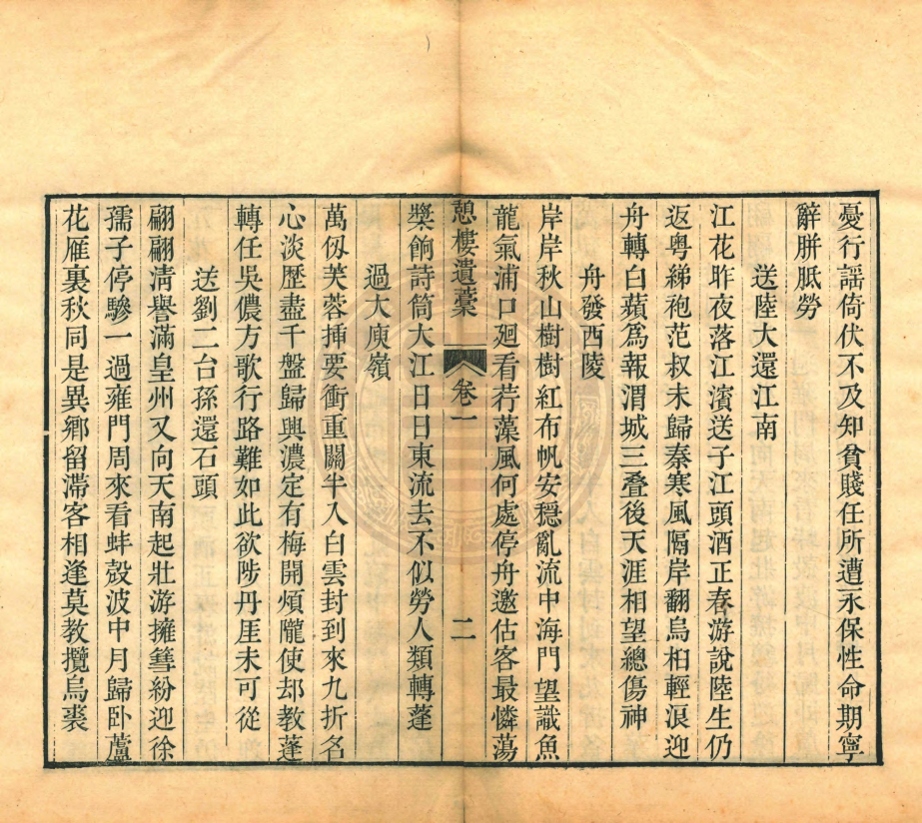 憂行謡倚伏不及知貧賤任所遭永保性命期寧
辭胼胝勞
送陸大還江南
江花昨夜落江濱送子江頭酒正春游說陸生仍
返粵綈袍范叔未歸秦寒風隔岸翻烏桕輕浪迎
舟轉白蘋爲報渭城三叠後天涯相望總傷神
舟發西陵
岸岸秋山樹樹紅布帆安穩亂流中海門望識魚
龍氣浦口廻看荇藻風何處停舟邀估客最憐蕩
憩樓遺藁 卷一 二
槳餉詩筒大江日日東流去不似勞人類轉蓬
過大庾嶺
萬仭芙蓉揷要衝重關半入白雲封到來九折名
心淡歷盡千盤歸興濃定有梅開煩隴使却教蓬
轉任吳儂方歌行路難如此欲陟丹厓未可從
送劉二台孫還石頭
翩翩淸譽滿皇州又向天南起壯游擁篲紛迎徐
孺子停驂一過雍門周來看蚌殼波中月歸卧蘆
花雁裏秋同是異鄉留滯客相逢莫教攬烏裘